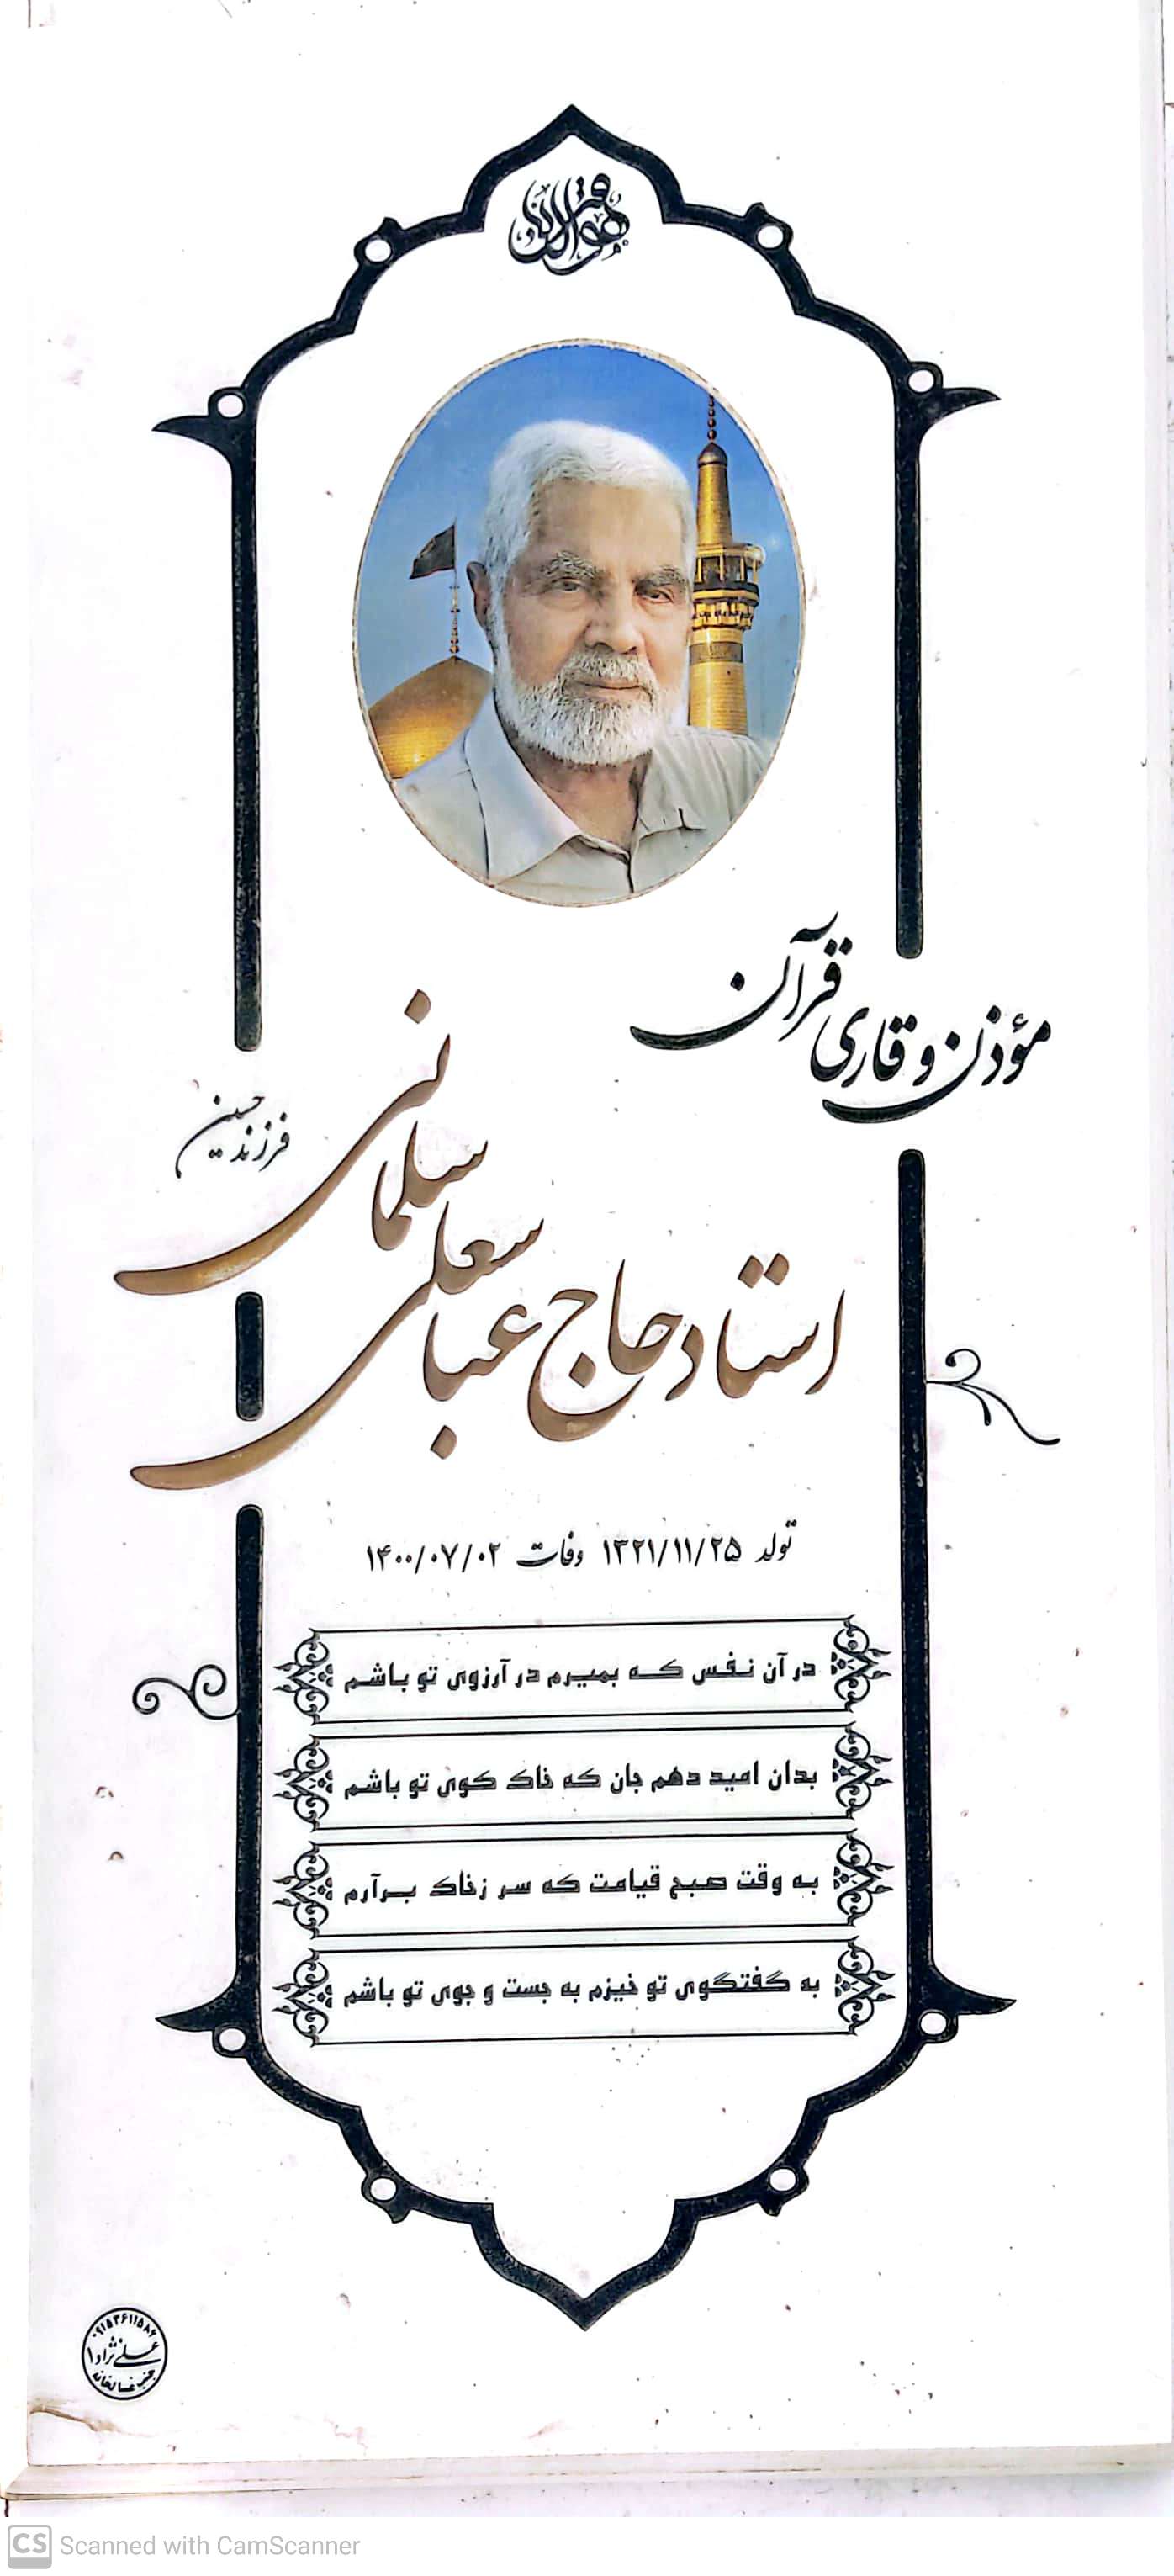 هوالباقی
مؤذن و قاری قرآن
استاد حاج عباسعلی سلمانی
فرزند حسین
تولد ۱۳۲۱/۱۱/۲۵ وفات ۱۴۰۰/۰۷/۰۲
در آن نفس که بمیرم در آرزوی تو باشم
بدان امید دهم جان که خاک کوی تو باشم
به وقت صبح قیامت که سر زخاک برآرم
به گفتگوی تو خیزم به جست و جوی تو باشم
علی نژاد ۱
جنب غسالخانه
CS Scanned with CamScanner